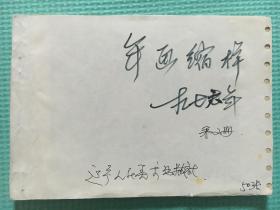 年画缩样
一九七六年
第二册
辽宁人民美术出版社
5035